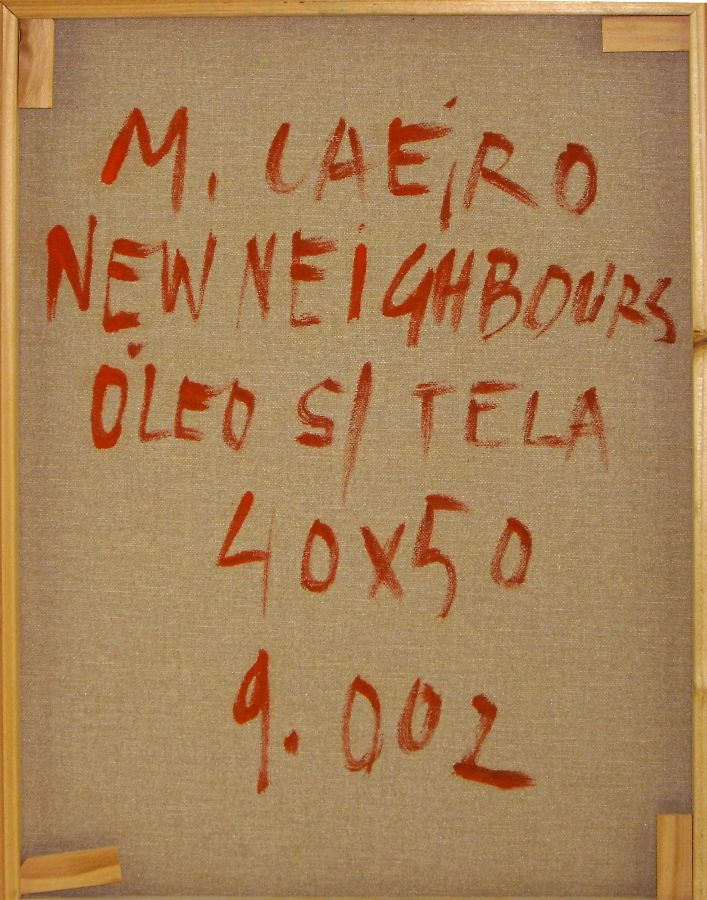 M. CAEiRO
NEW NEiGHBOURS
ÓLEO S/ TELA
40x50
9.002